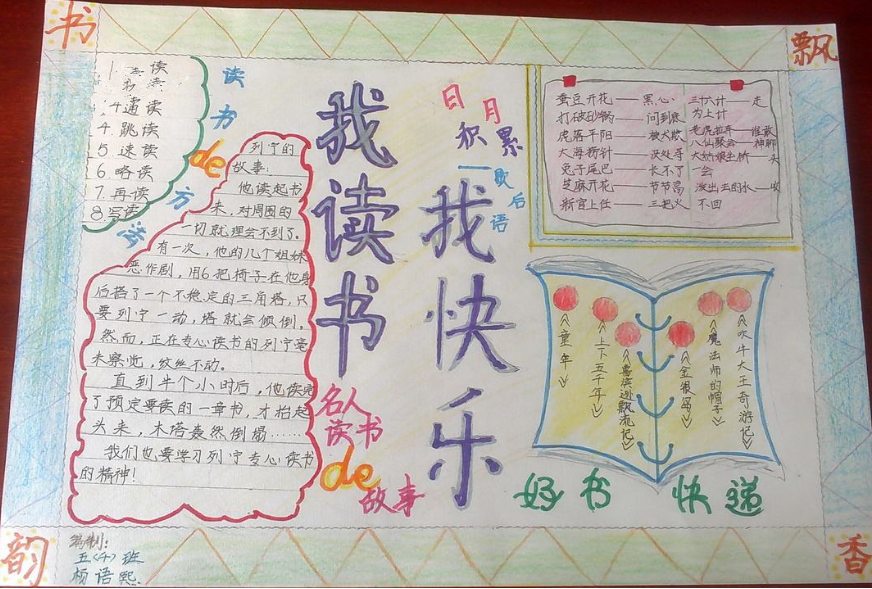 书
飘
韵
香
读书de方法
1.
4通读
4.跳读
5 速读
6 略读
7.再读
8.写读
我读书
我快乐
日月积累
歇后语
蚕豆开花——黑心
打破砂锅——问到底
虎落平阳——被犬欺
大海捞针——没处寻
兔子尾巴——长不了
芝麻开花——节节高
新官上任——三把火
三十六计——走为上计
八仙聚会——神聊
大姑娘坐轿——头一会
泼出去的水——收不回
列宁的故事:
他读起书来,对周围的
一切就理会不到了。
有一次,他的几个姐妹
恶作剧,用6把椅子在他身
后搭了一个不稳定的三角塔,只
要列宁一动,塔就会倾倒。
然而,正在专心读书的列宁毫
未察觉,纹丝不动。
直到半个小时后,他读完
了预定要读的一章书,才抬起
头来,木塔轰然倒塌……
我们也要学习列宁专心读书
的精神!
名人读书de故事
《童年》
《上下五千年》
《鲁滨逊飘流记》
《金银岛》
《魔法师的帽子》
《吹牛大王奇游记》
好书 快递
编制:
五〈4〉班
杨语熙